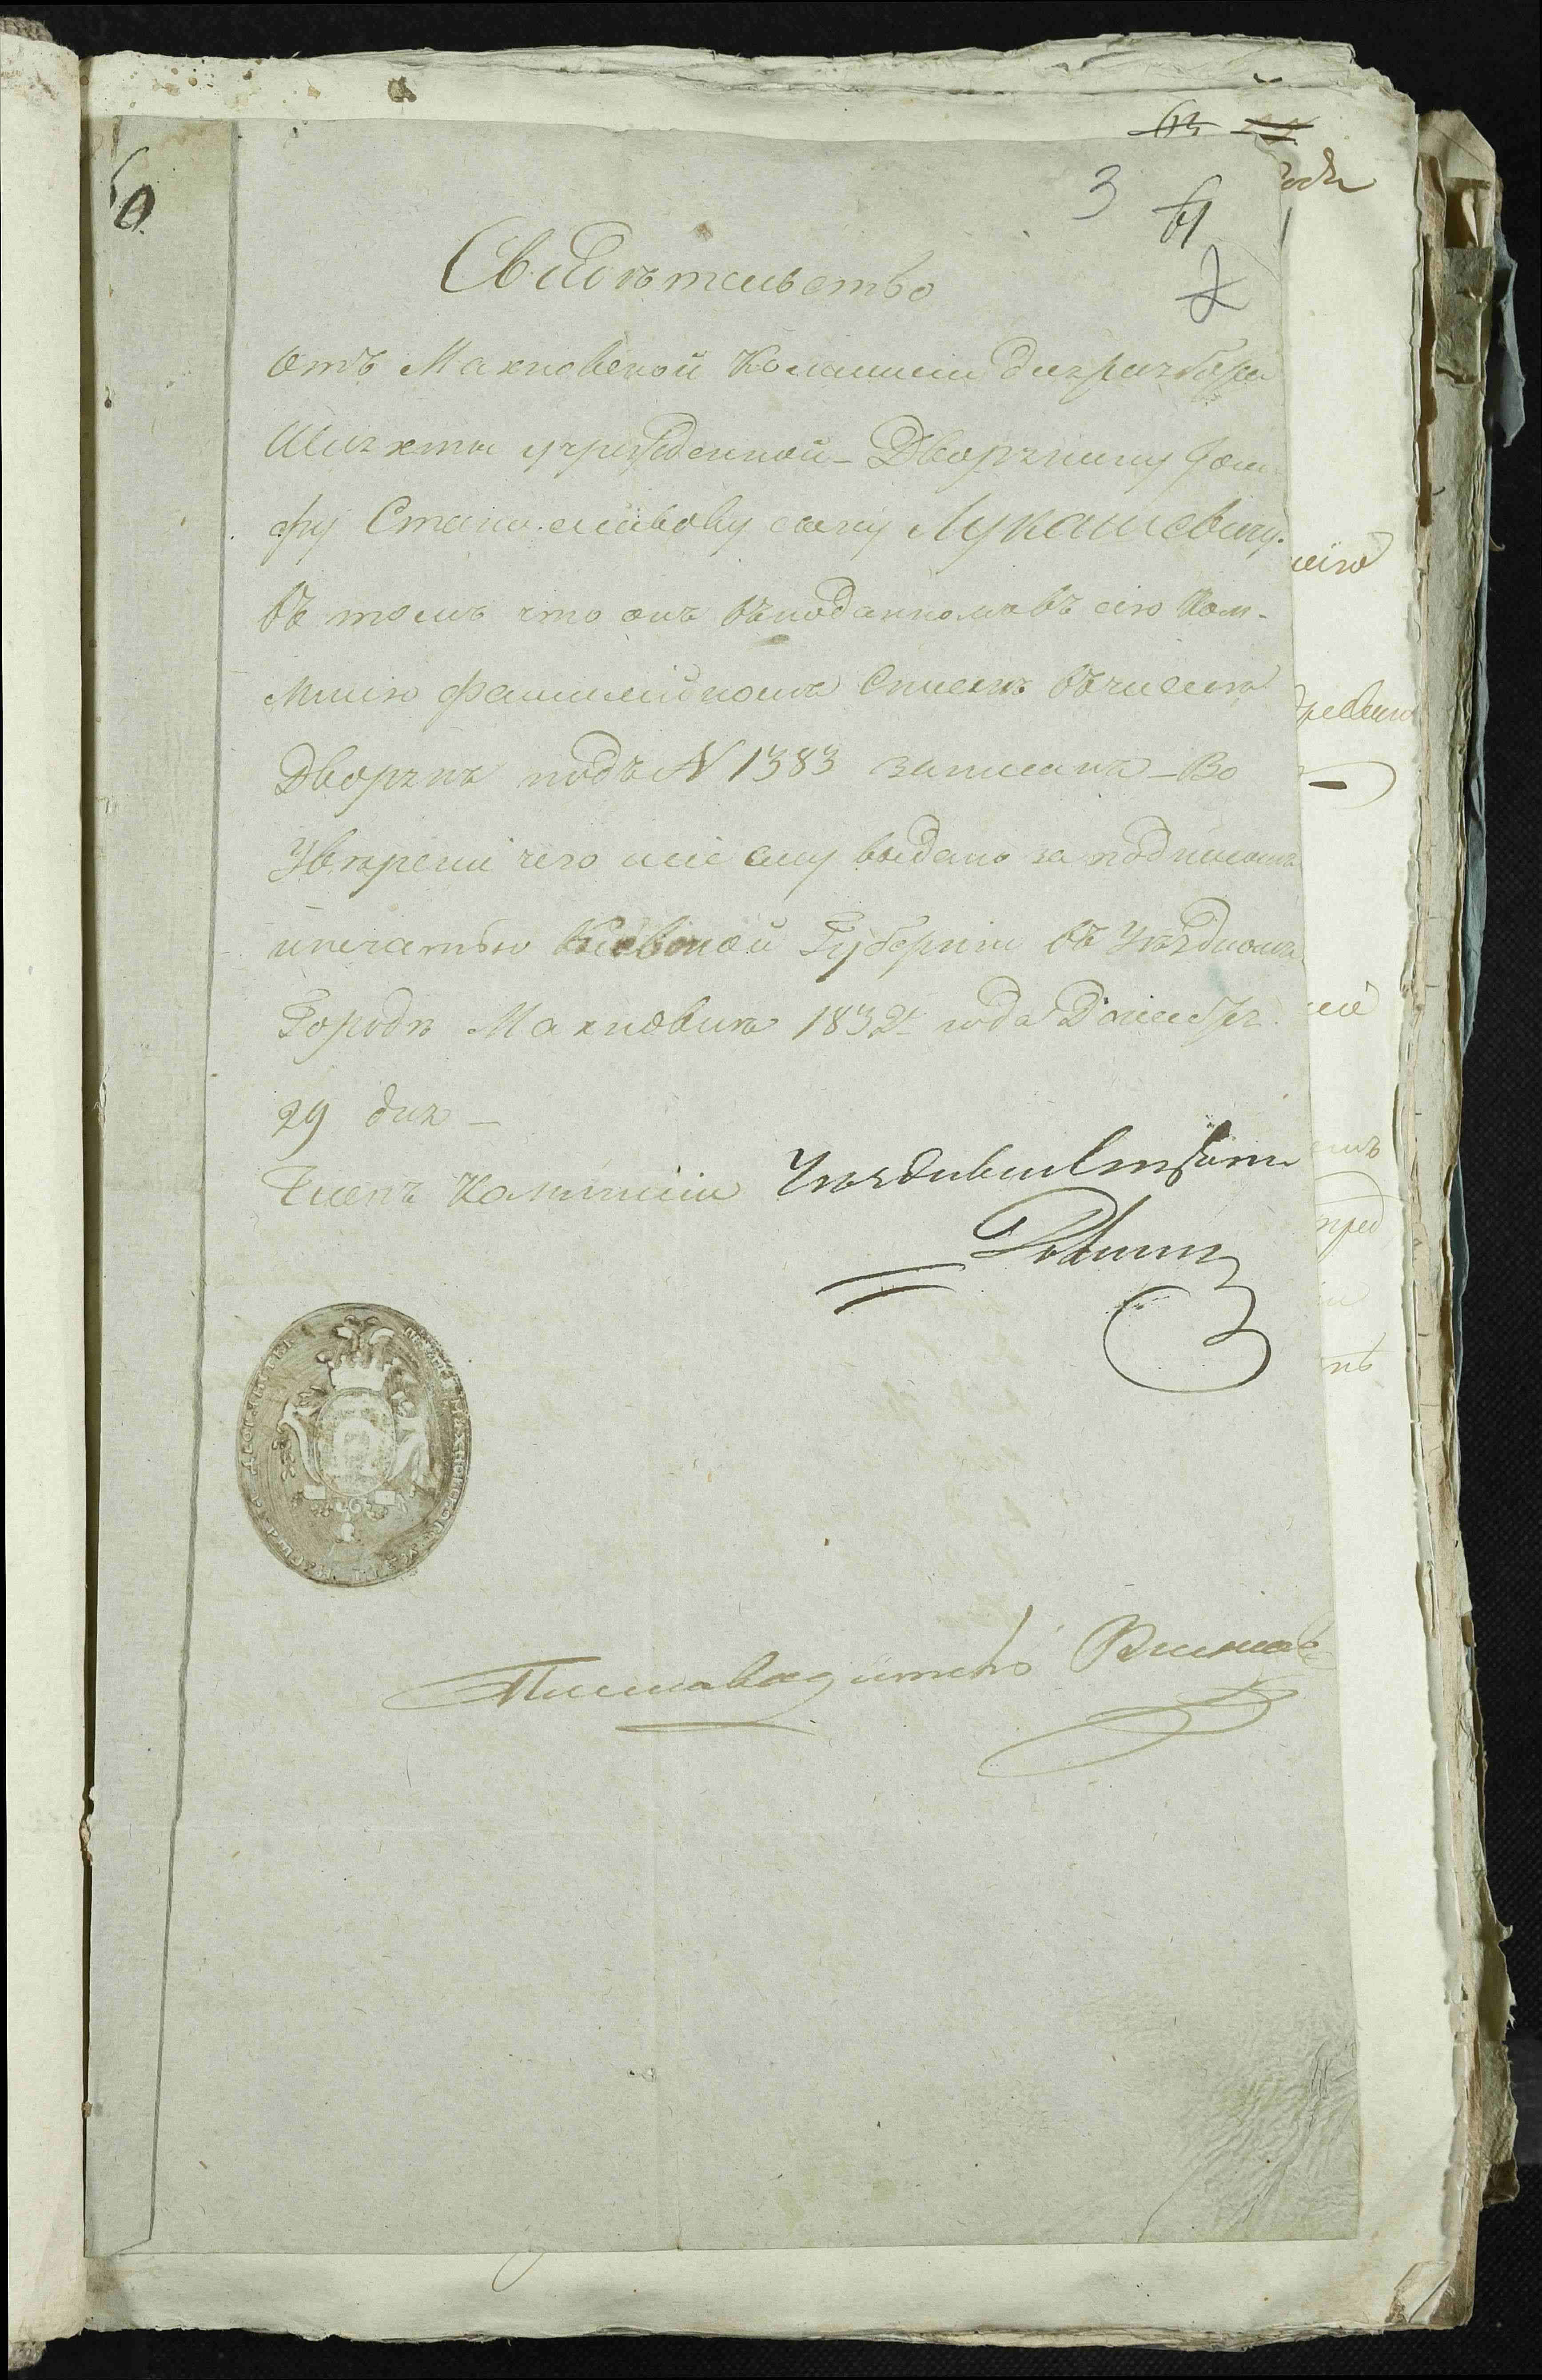 63
3 61
2
60
Свидѣтельство
отъ Махновской Коммисіи для разбора
Шляхты учрежденной – Дворянину Іоси-
фу Станиславову сыну Лукашевичу.
въ томъ что онъ въ поданномъ въ сію Ком-
мисію фамилійномъ Спискѣ въ числѣ
Дворянъ подъ N 1383 записанъ – Во
Увѣреніи чего сіе ему выдано за подписомъ
и печатью Кіевской Губерніи въ Уѣздномъ
Городѣ Махновкѣ 1832 года Декабря
29 дня –
Членъ Коммисіи
Письмоводитель